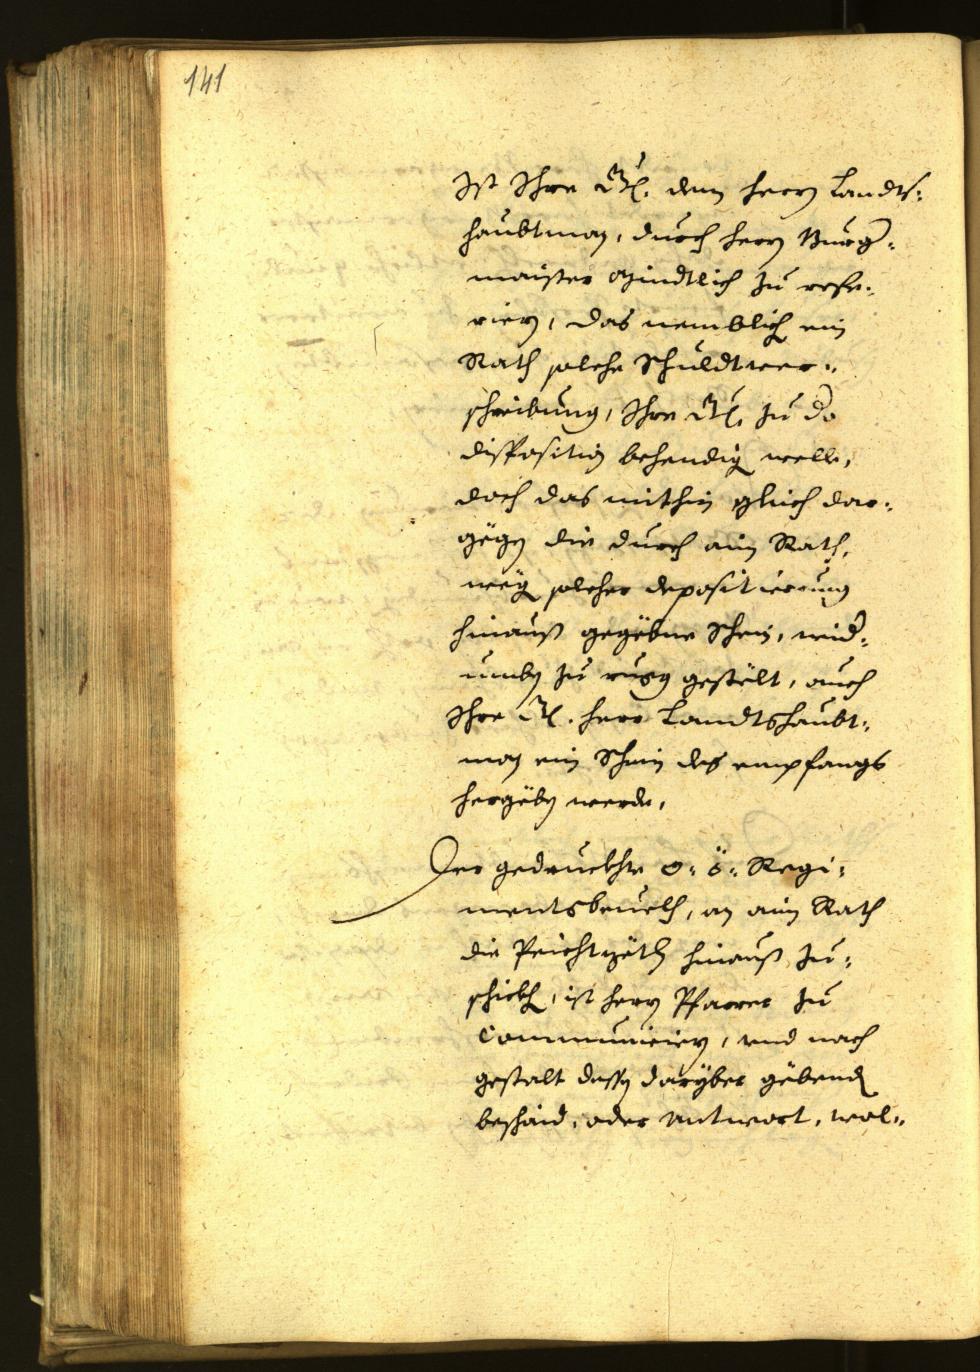 141
Ist Ihre Gl. dem herrn Landts-
haubtman, durch herrn Burge-
maister mindtlich zu refe-
riern, das nemblich ein
Rath solche Schuldtver-
schreibung, Ihre Gl. zu der
disposition behendign welle,
doch das mithin gleich dar-
gegen die durch ain Rath,
wegen solcher depositierung
hinauß gegebne Schein, wider-
umben zu rugg gestelt, auch
Ihre Gl. herr Landtshaubt-
man ein Schein des empfangs
hergeben werde,
Der gedruckhte O: Ö: Regi-
mentsbevelch, an ain Rath
die Peichtzötl hinauß zu-
schickhen, ist herrn Pfarrer zu
Communiciern, und nach
gestalt dessen darüber gebenden
beschaid, oder Antwort, wol-